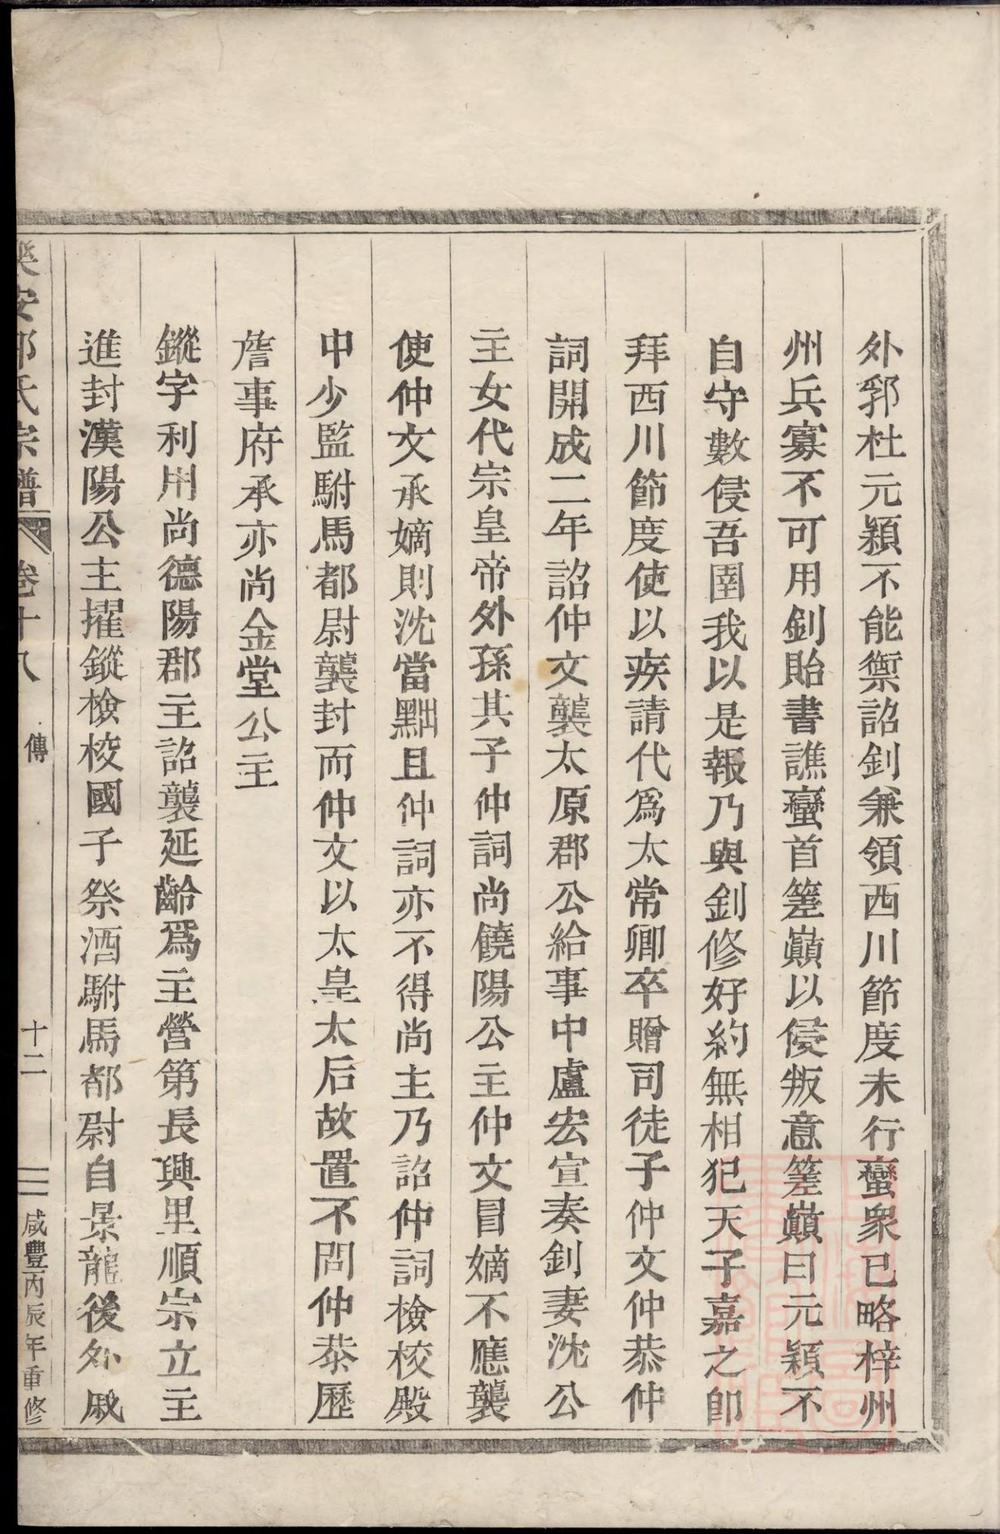 外郛杜元穎不能禦詔釗兼領西川節度未行蠻衆已略梓州
州兵寡不可用釗貽書譙蠻首簉巔以侵叛意簉巔曰元穎不
自守數侵吾圉我以是報乃與釗修好約無相犯天子嘉之卽
拜西川節度使以疾請代爲太常卿卒贈司徒子仲文仲恭仲
詞開成二年詔仲文襲太原郡公給事中盧宏宣奏釗妻沈公
主女代宗皇帝外孫其子仲詞尚饒陽公主仲文冒嫡不應襲
使仲文承嫡則沈當黜且仲詞亦不得尚主乃詔仲詞檢校殿
中少監駙馬都尉襲封而仲文以太皇太后故置不問仲恭歷
詹事府承亦尚金堂公主
鏦字利用尚德陽郡主詔襲延齡爲主營第長興里順宗立主
進封漢陽公主擢鏦檢校國子祭酒駙馬都尉自景龍後外戚
樂安郭氏宗譜 卷十八 傳 十二 咸豐丙辰年重修